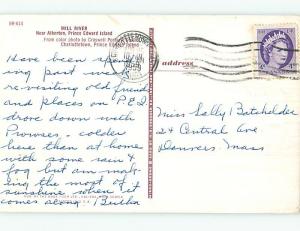 MILL RIVER
Near Alberton, Prince Edward Island
From color photo by Criswell
Charlottetown, Prince Edward Island
Have been spend
ing past week
re-visiting old friends
and places on P.E.I
drove down with
Prowses - colder
here than at home
with some rain &
fog but am mak-
ing the most of
sunshine when it
comes along Bertha
address
Miss Sally Batchelder
24 Central Ave
Danvers Mass